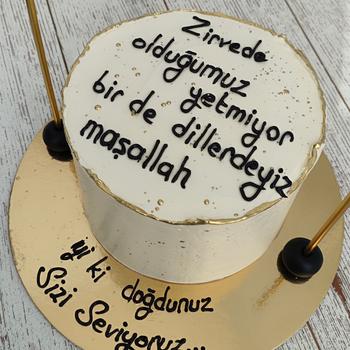 Zirvede
olduğumuz
yetmiyor
bir de dillerdeyiz
maşallah
iyi ki doğdunuz
Sizi Seviyoruz